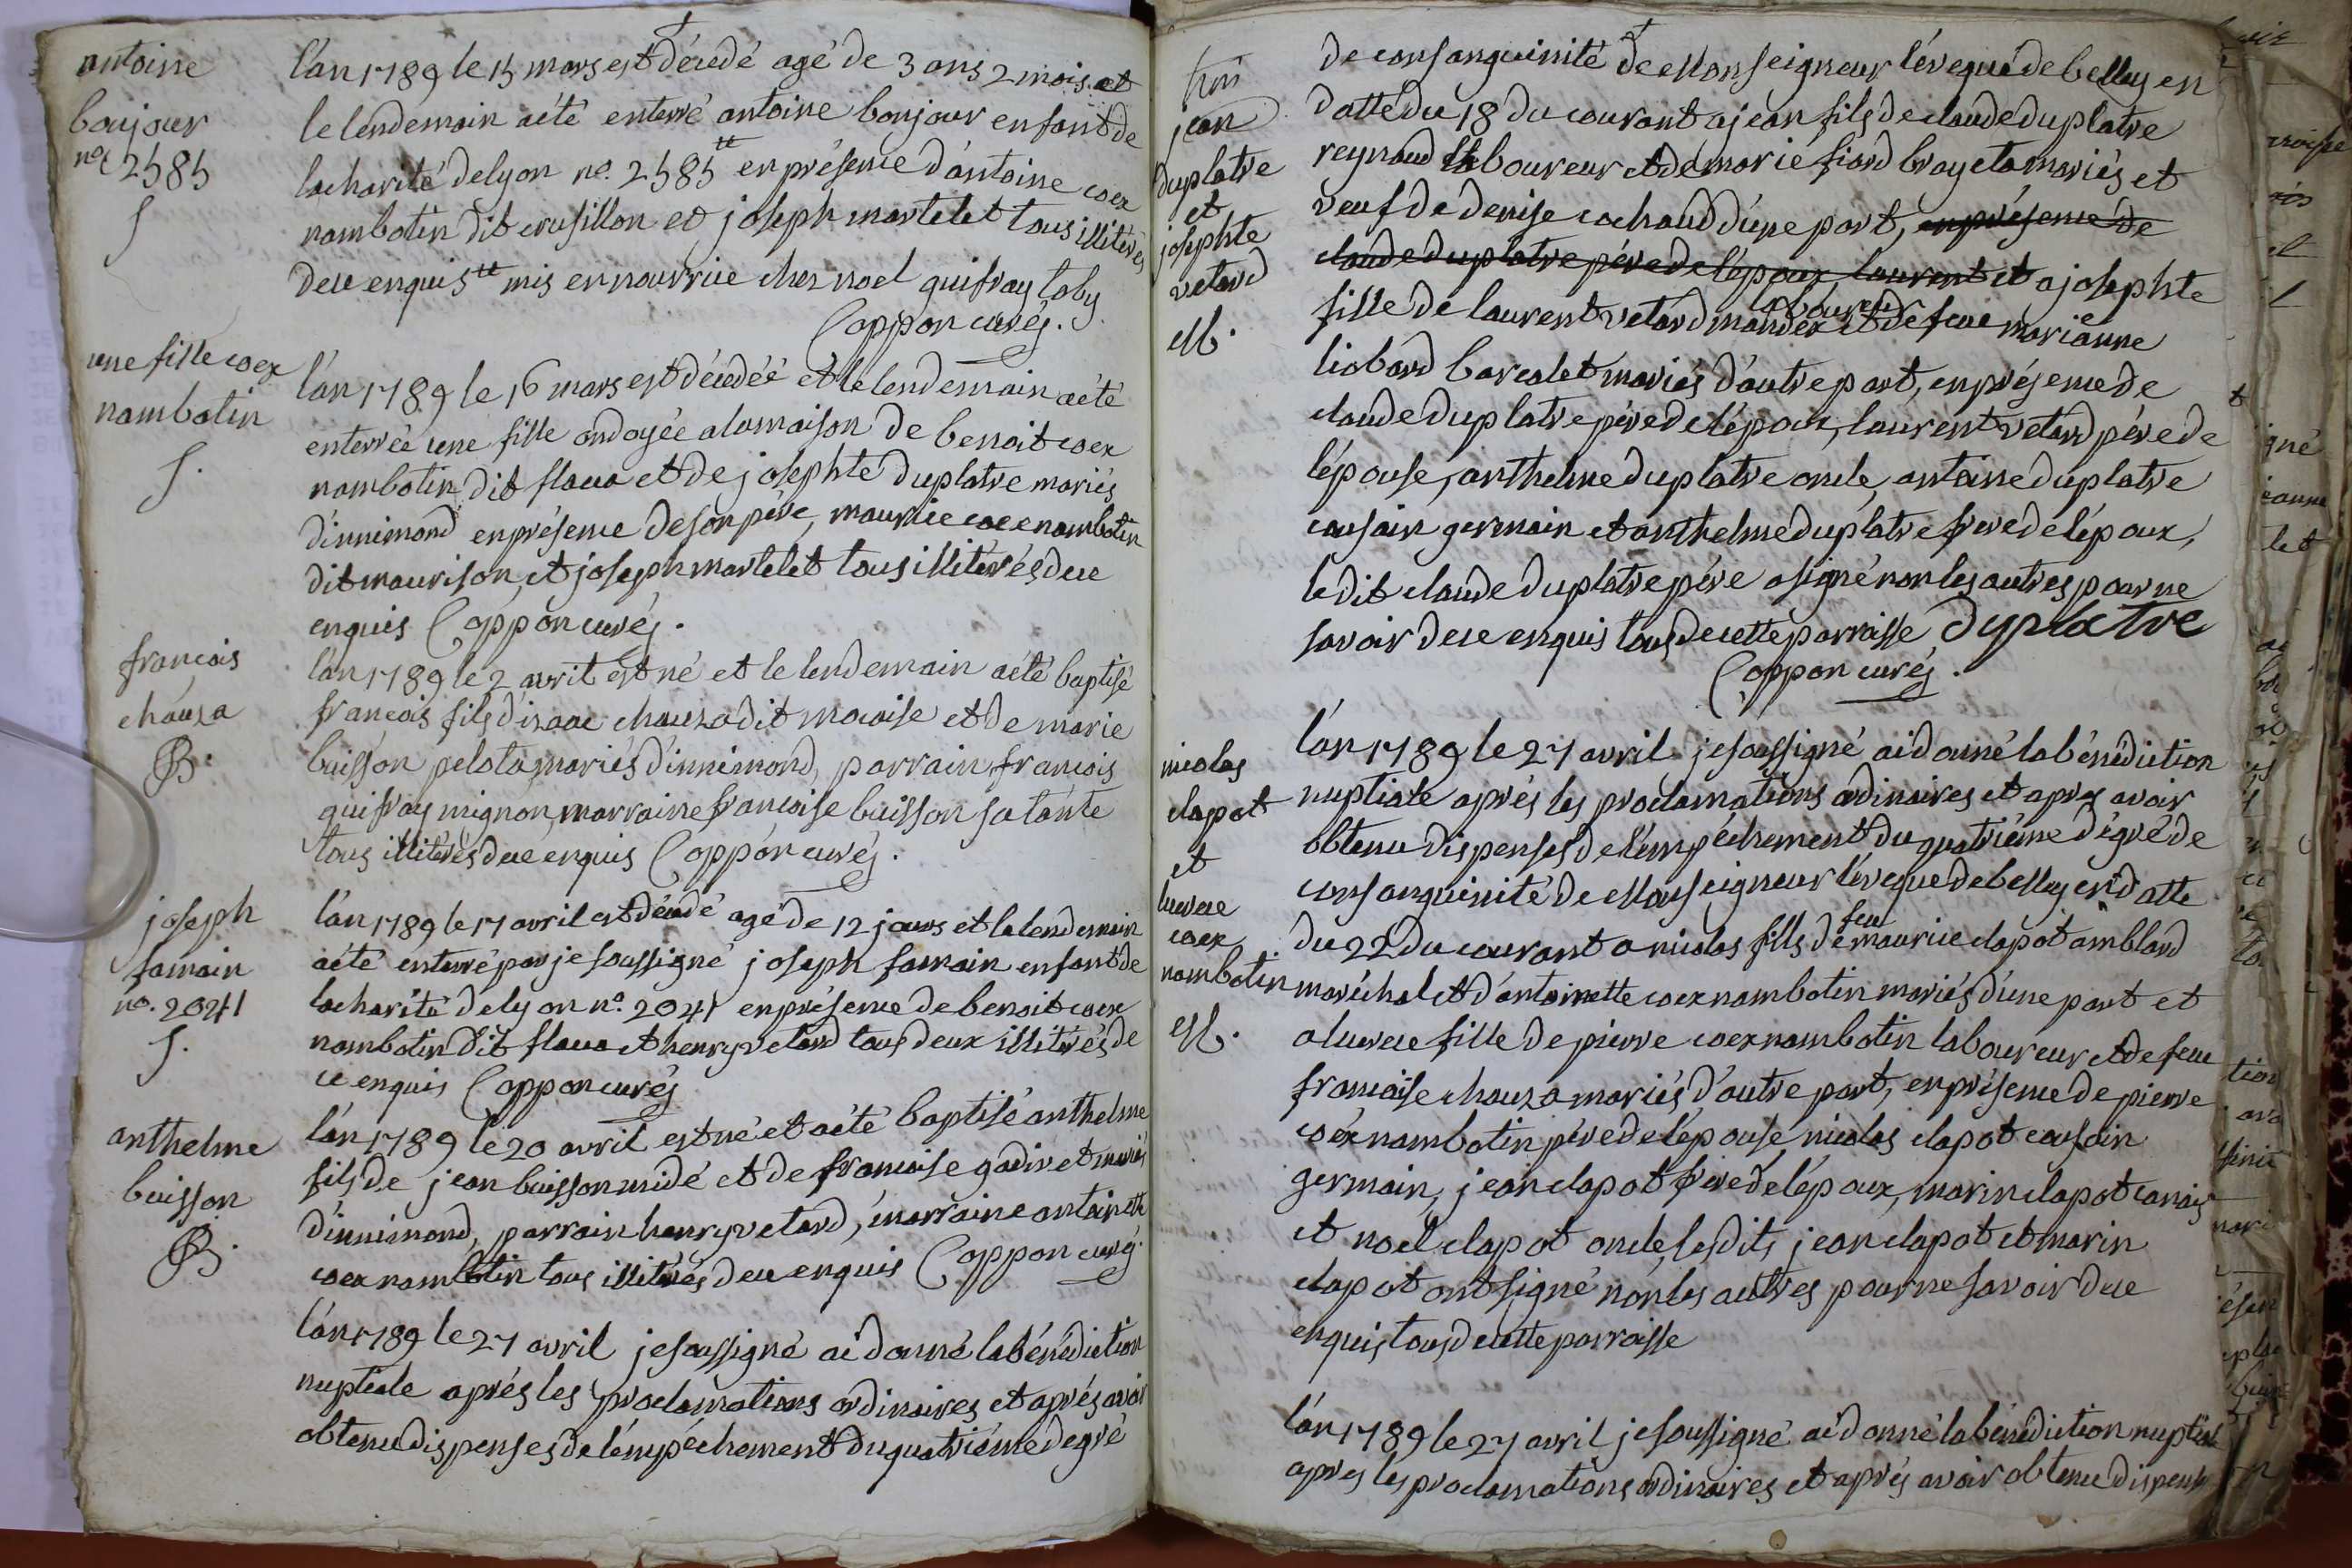 antoine
boujour
no. 2585
S
l'an 1789 le 15 mars est décédé agé de 3 ans 2 mois et
le lendemain aété enterré antoine boujour enfant de
la charité de lyon no. 2585 en présence d'antoine coex
nambotin dit crusillon et joseph martelet tous illitérés
de ce enquis mis en nourrice chez noel guifray toby
Coppon curé.
une fille coex
nambotin
S.
l'an 1789 le 16 mars est décédée et le lendemain aété
enterrée une fille ondoyée a la maison de benoit coex
nambotin dit flaua et de josephte duplatre mariés
d'innimond en présence de son père, maurice coex nambotin
dit maurison, et joseph martelet tous illitérés de ce
enquis Coppon curé.
francois
chauza
B.
l'an 1789 le 2 avril est né et le lendemain aété baptisé
francois fils d'izaac chauza dit mocaise et de marie
buisson pelota mariés d'innimond, parrain francois
guifray mignon, marraine francoise buisson sa tante
tous illitérés de ce enquis Coppon curé.
joseph
famain
no. 2041
S.
l'an 1789 le 17 avril est décédé agé de 12 jours et le lendemain
aété enterré par je soussigné joseph famain enfant de
la charité de lyon no. 2041 en présence de benoit coex
nambotin dit flaua et henry vetard tous deux illitérés de
ce enquis Coppon curé
anthelme
buisson
B.
l'an 1789 le 20 avril est né et aété baptisé anthelme
fils de jean buisson midé et de francoise gadivet mariés
d'innimond, parrain henry vetard, marraine antoinette
coex nambotin tous illitérés de ce enquis Coppon curé
l'an 1789 le 27 avril je soussigné ai donné la bénédiction
nuptiale aprés les proclamations ordinaires et aprés avoir
obtenu dispenses de l'empéchement du quatriéme degré
jean
duplatre
et
josephte
vetard
M.
de consanguinité de Monseigneur l'éveque de belley en
datte du 18 du courant a jean fils de claude duplatre
reynaud laboureur et de marie fiard brayeta mariés et
veuf de denise cochaud d'une part, en présence de
claude duplatre pére de l'époux laurent et a josephte
laboureur
fille de laurent vetard mandex et de feue marianne
liobard barcalet mariés d'autre part, en présence de
claude duplatre pére de l'époux, laurent vetard pére de
l'épouse, anthelme duplatre oncle, antoine duplatre
cousain germain et anthelme duplatre frere de l'époux,
ledit claude duplatre pére a signé non les autres pour ne
savoir de ce enquis tous de cette parroisse Duplatre
Coppon curé.
nicolas
clapot
et
lucrece
coex
nambotin
M.
l'an 1789 le 27 avril je soussigné ai donné la bénédiction
nuptiale aprés les proclamations ordinaires et apres avoir
obtenu dispenses de l'empéchement du quatriéme dégré de
consanguinité de Monseigneur l'éveque de belley en datte
feu
du 22 du courant a nicolas fils de maurice clapot amblard
maréchal et d'antoinette coex nambotin mariés d'une part et
a lucrece fille de pierre coex nambotin laboureur et de feue
francoise chauza mariés d'autre part, en présence de pierre
coex nambotin pére de l'épouse nicolas clapot cousain
germain, jean clapot frere de l'époux, marin clapot
et noel clapot oncle lesdits jean clapot et marin
clapot ont signé non les autres pour ne savoir de ce
enquis tous de cette parroisse
l'an 1789 le 27 avril je soussigné ai donné la bénédiction nuptiale
apres les proclamations ordinaires et aprés avoir obtenu dispense